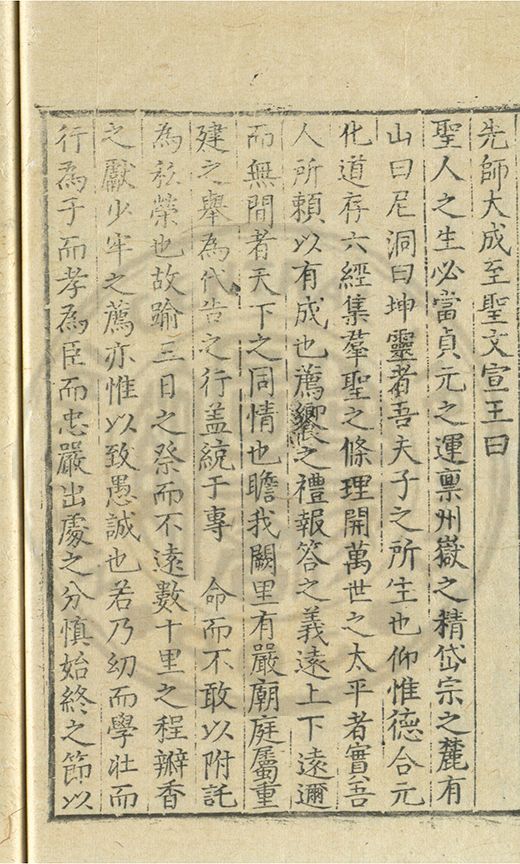 先師大成至聖文宣王曰
聖人之生必當貞元之運禀州嶽之精岱宗之麓有
山曰尼洞曰坤靈者吾夫子之所生也仰惟德合元
化道存六經集羣聖之條理開萬世之太平者實吾
人所賴以有成也薦饗之禮報答之義遠上下遠邇
而無間者天下之同情也瞻我闕里有嚴廟庭屬重
建之舉為代告之行盖統于專 命而不敢以附託
為私榮也故踰三日之祭而不遠數十里之程瓣香
之獻少牢之薦亦惟以致愚誠也若乃幼而學壯而
行為子而孝為臣而忠嚴出處之分慎始終之節以